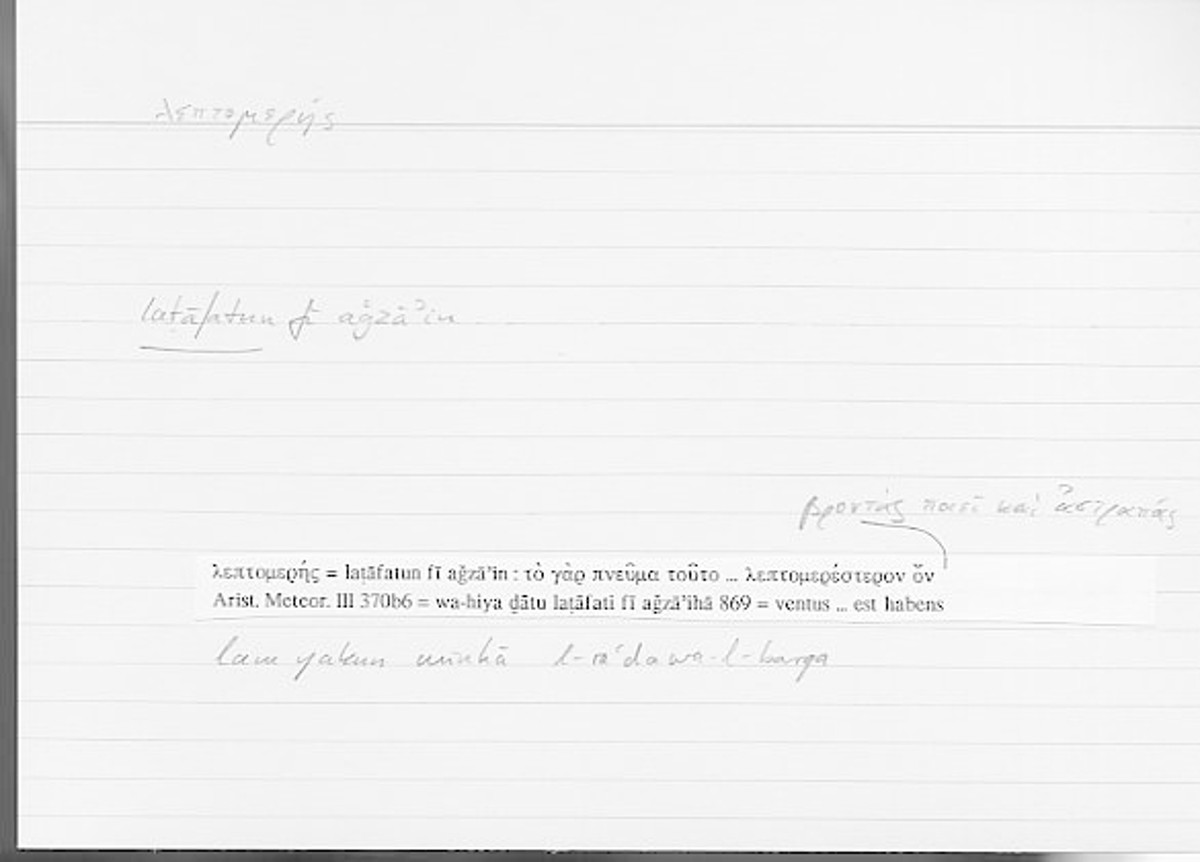 λεπτομερής
laṭāfatun fī aǧzāʾin
βροντάς ποιεῖ καὶ ἀστραπάς
λεπτομερής = laṭāfatun fī aǧzāʾin : τὸ γὰρ πνεῦμα τοῦτο ... λεπτομερέστερον ὄν
Arist. Meteor. III 370b6 = wa-hiya ḏātu laṭāfati fī aǧzāʾihā 869 = ventus ... est habens
lam yakun minhā l-raʿda wa-l-barqa